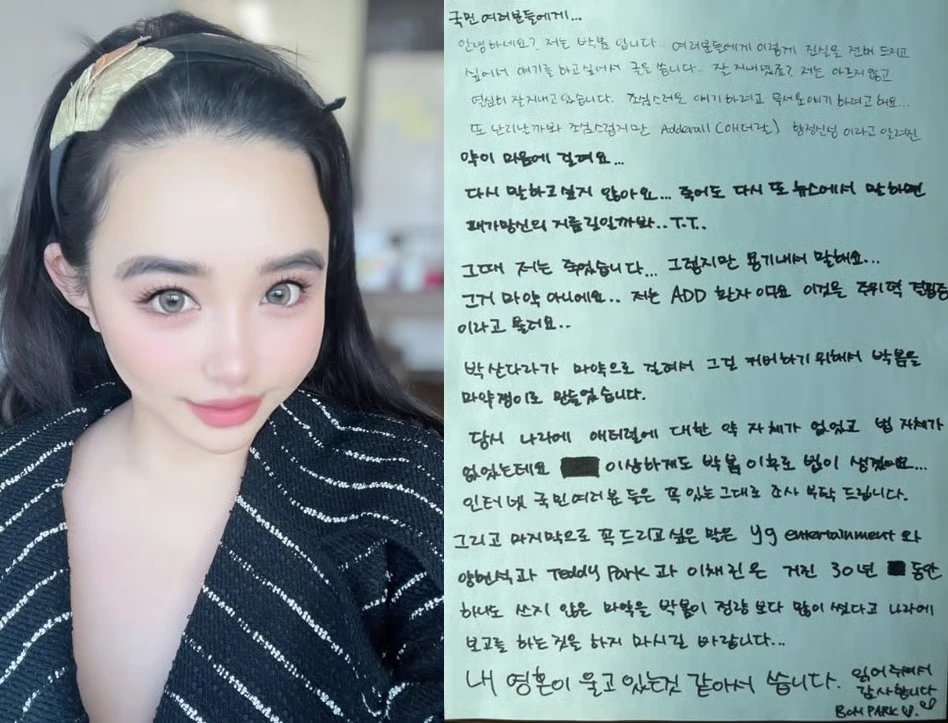 국민 여러분들에게...
안녕하세요? 저는 박봄 입니다.. 여러분들에게 이렇게 진실을 전해 드리고
싶어서 얘기를 하고싶어서 글을 씁니다.. 잘 지내셨죠? 저는 아프지 않고
열심히 잘지내고 있습니다. 조심스러운 얘기하려고 무서운얘기 하려고 해요...
또 난리날까봐 조심스럽지만 Adderall (애더랄) 향정신성 이라고 알려진
약이 마음에 걸려요...
다시 말하고 싶지 않아요... 죽어도 다시 또 뉴스에서 말하면
패가망신의 지름길일까봐..T.T..
그때 저는 죽었습니다... 그렇지만 용기내서 말해요...
그거 마약 아니에요.. 저는 ADD 환자 이며요 이것은 주위력 결핍증
이라고 불러요..
박산다라가 마약으로 걸려서 그걸 커버하기 위해서 박봄을
마약쟁이로 만들었습니다.
당시 나라에 애더럴에 대한 약 자체가 없었고 법 자체가
없었는데요 이상하게도 박봄 이후로 법이 생겼어요...
인터넷 국민여러분 들은 꼭 있는그대로 조사 부탁 드립니다.
그리고 마지막으로 꼭 드리고 싶은 말은 yg entertainment 와
양현석과 Teddy Park 과 이채린은 거진 30년 동안
하나도 쓰지 않은 마약을 박봄이 정량 보다 많이 썼다고 나라에
보고를 하는것을 하지 마시길 바랍니다...
내 영혼이 울고 있는것 같아서 씁니다.
읽어주셔서
감사합니다
BOM PARK